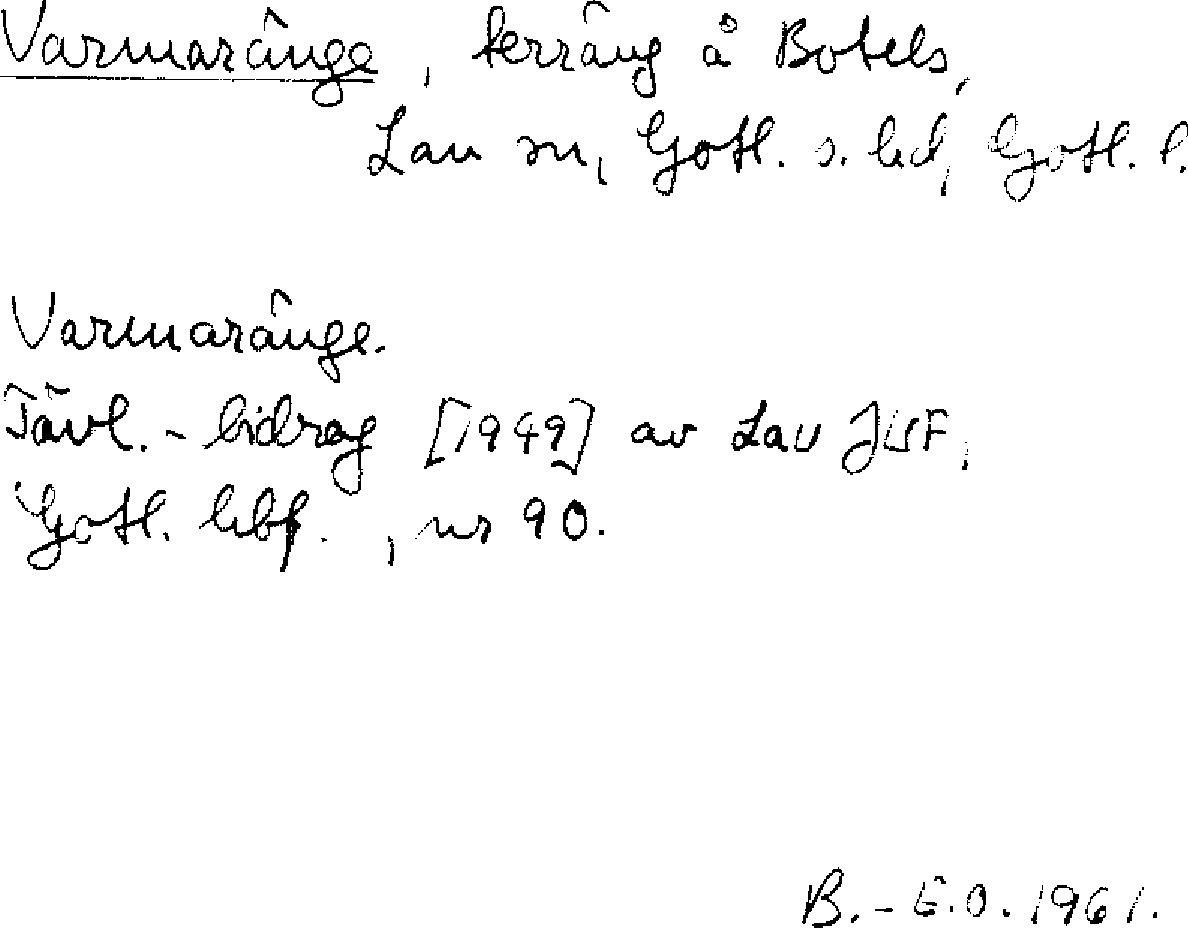 Varmaränge, terräng å Botels,
Lau sn, Gotl. s. hd, Gotl. l.
Varmaränge.
Tävl.-bidrag [1949] av Lau JUF,
Gotl. hbf., nr 90.
B.-E.O. 1961.